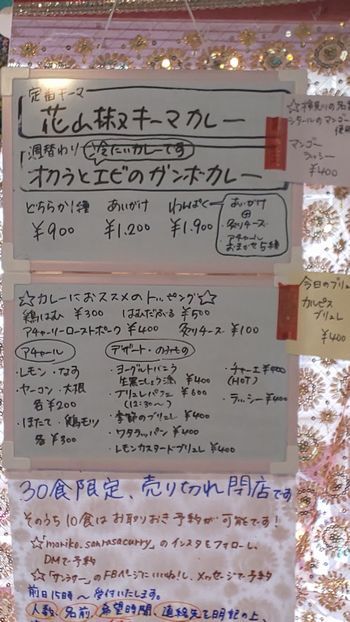 定番キーマ
花山椒キーマカレー
週替わり 冷たいカレーです
オクラとエビのガンボカレー
どちらか1種 あいがけ わんぱく
¥900 ¥1.200 ¥1.900
あいがけ
田
・炙りチーズ
・アチャール
おまかせ5種
マンゴー
ラッシー
¥400
☆カレーにおススメのトッピング☆
鶏はむ ¥300 はむだぶる ¥500
アチャーリーローストポーク ¥400 炙りチーズ ¥100
今日のブリュ
カルピス
ブリュレ
¥400
アチャール
・レモン・なす
・ヤーコン・大根
各¥200
・ほたて・鶏モツ
各¥300
デザート・のみもの
・ヨーグルトばこう
生黒こしょう添 ¥400
・ブリュレパフェ ¥600
(12:30〜)
・季節のブリュレ ¥400
・ワタラッパン ¥400
・レモンカスタードブリュレ ¥400
・チャーエ ¥400
(HOT)
・ラッシー ¥400
30食限定、売り切れ閉店です
そのうち10食はお取りおき予約が可能です!
のインスタをフォローし、
DMで予約
のFBページにいいね!し、メッセージで予約
前日15時〜受付いたします。
人数、名前、希望時間、連絡先を明記の上、